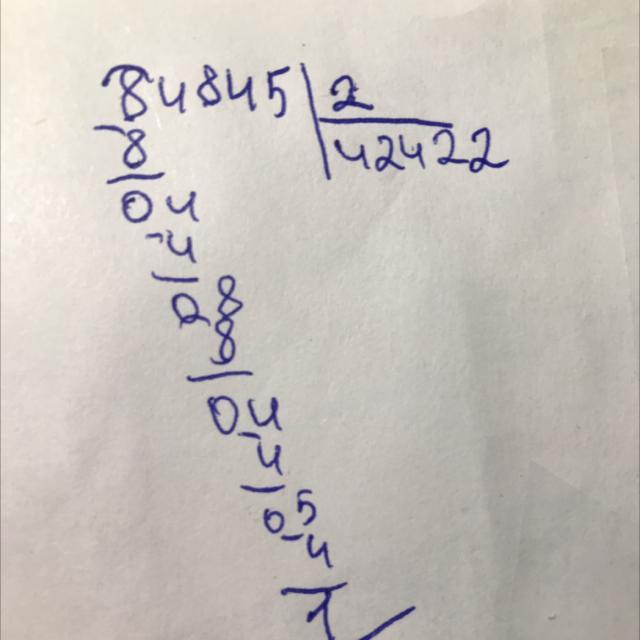 84845 2
-8 42422
04
-4
08
8
04
-4
05
-4
1